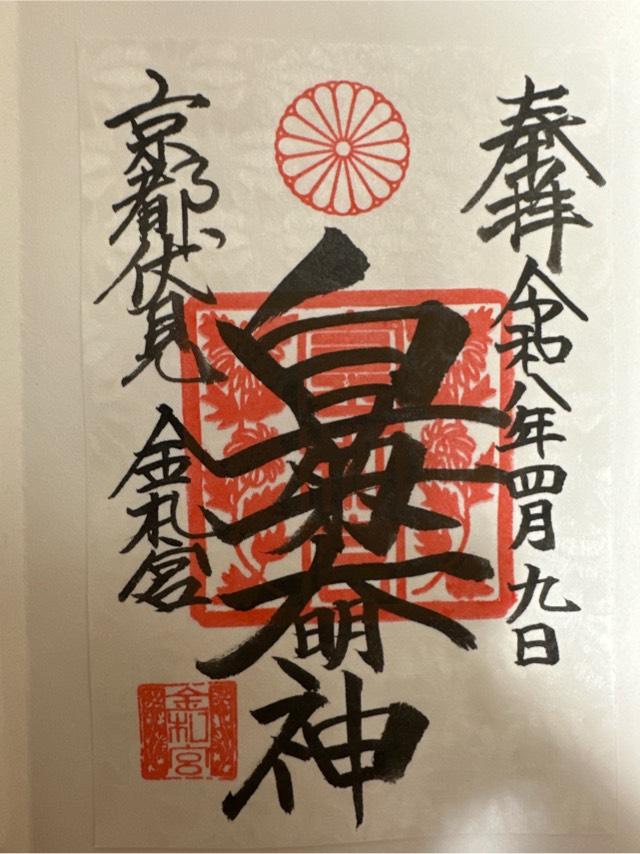 奉拝 令和八年四月九日
白菊大明神
京都伏見 金札宮
金札宮